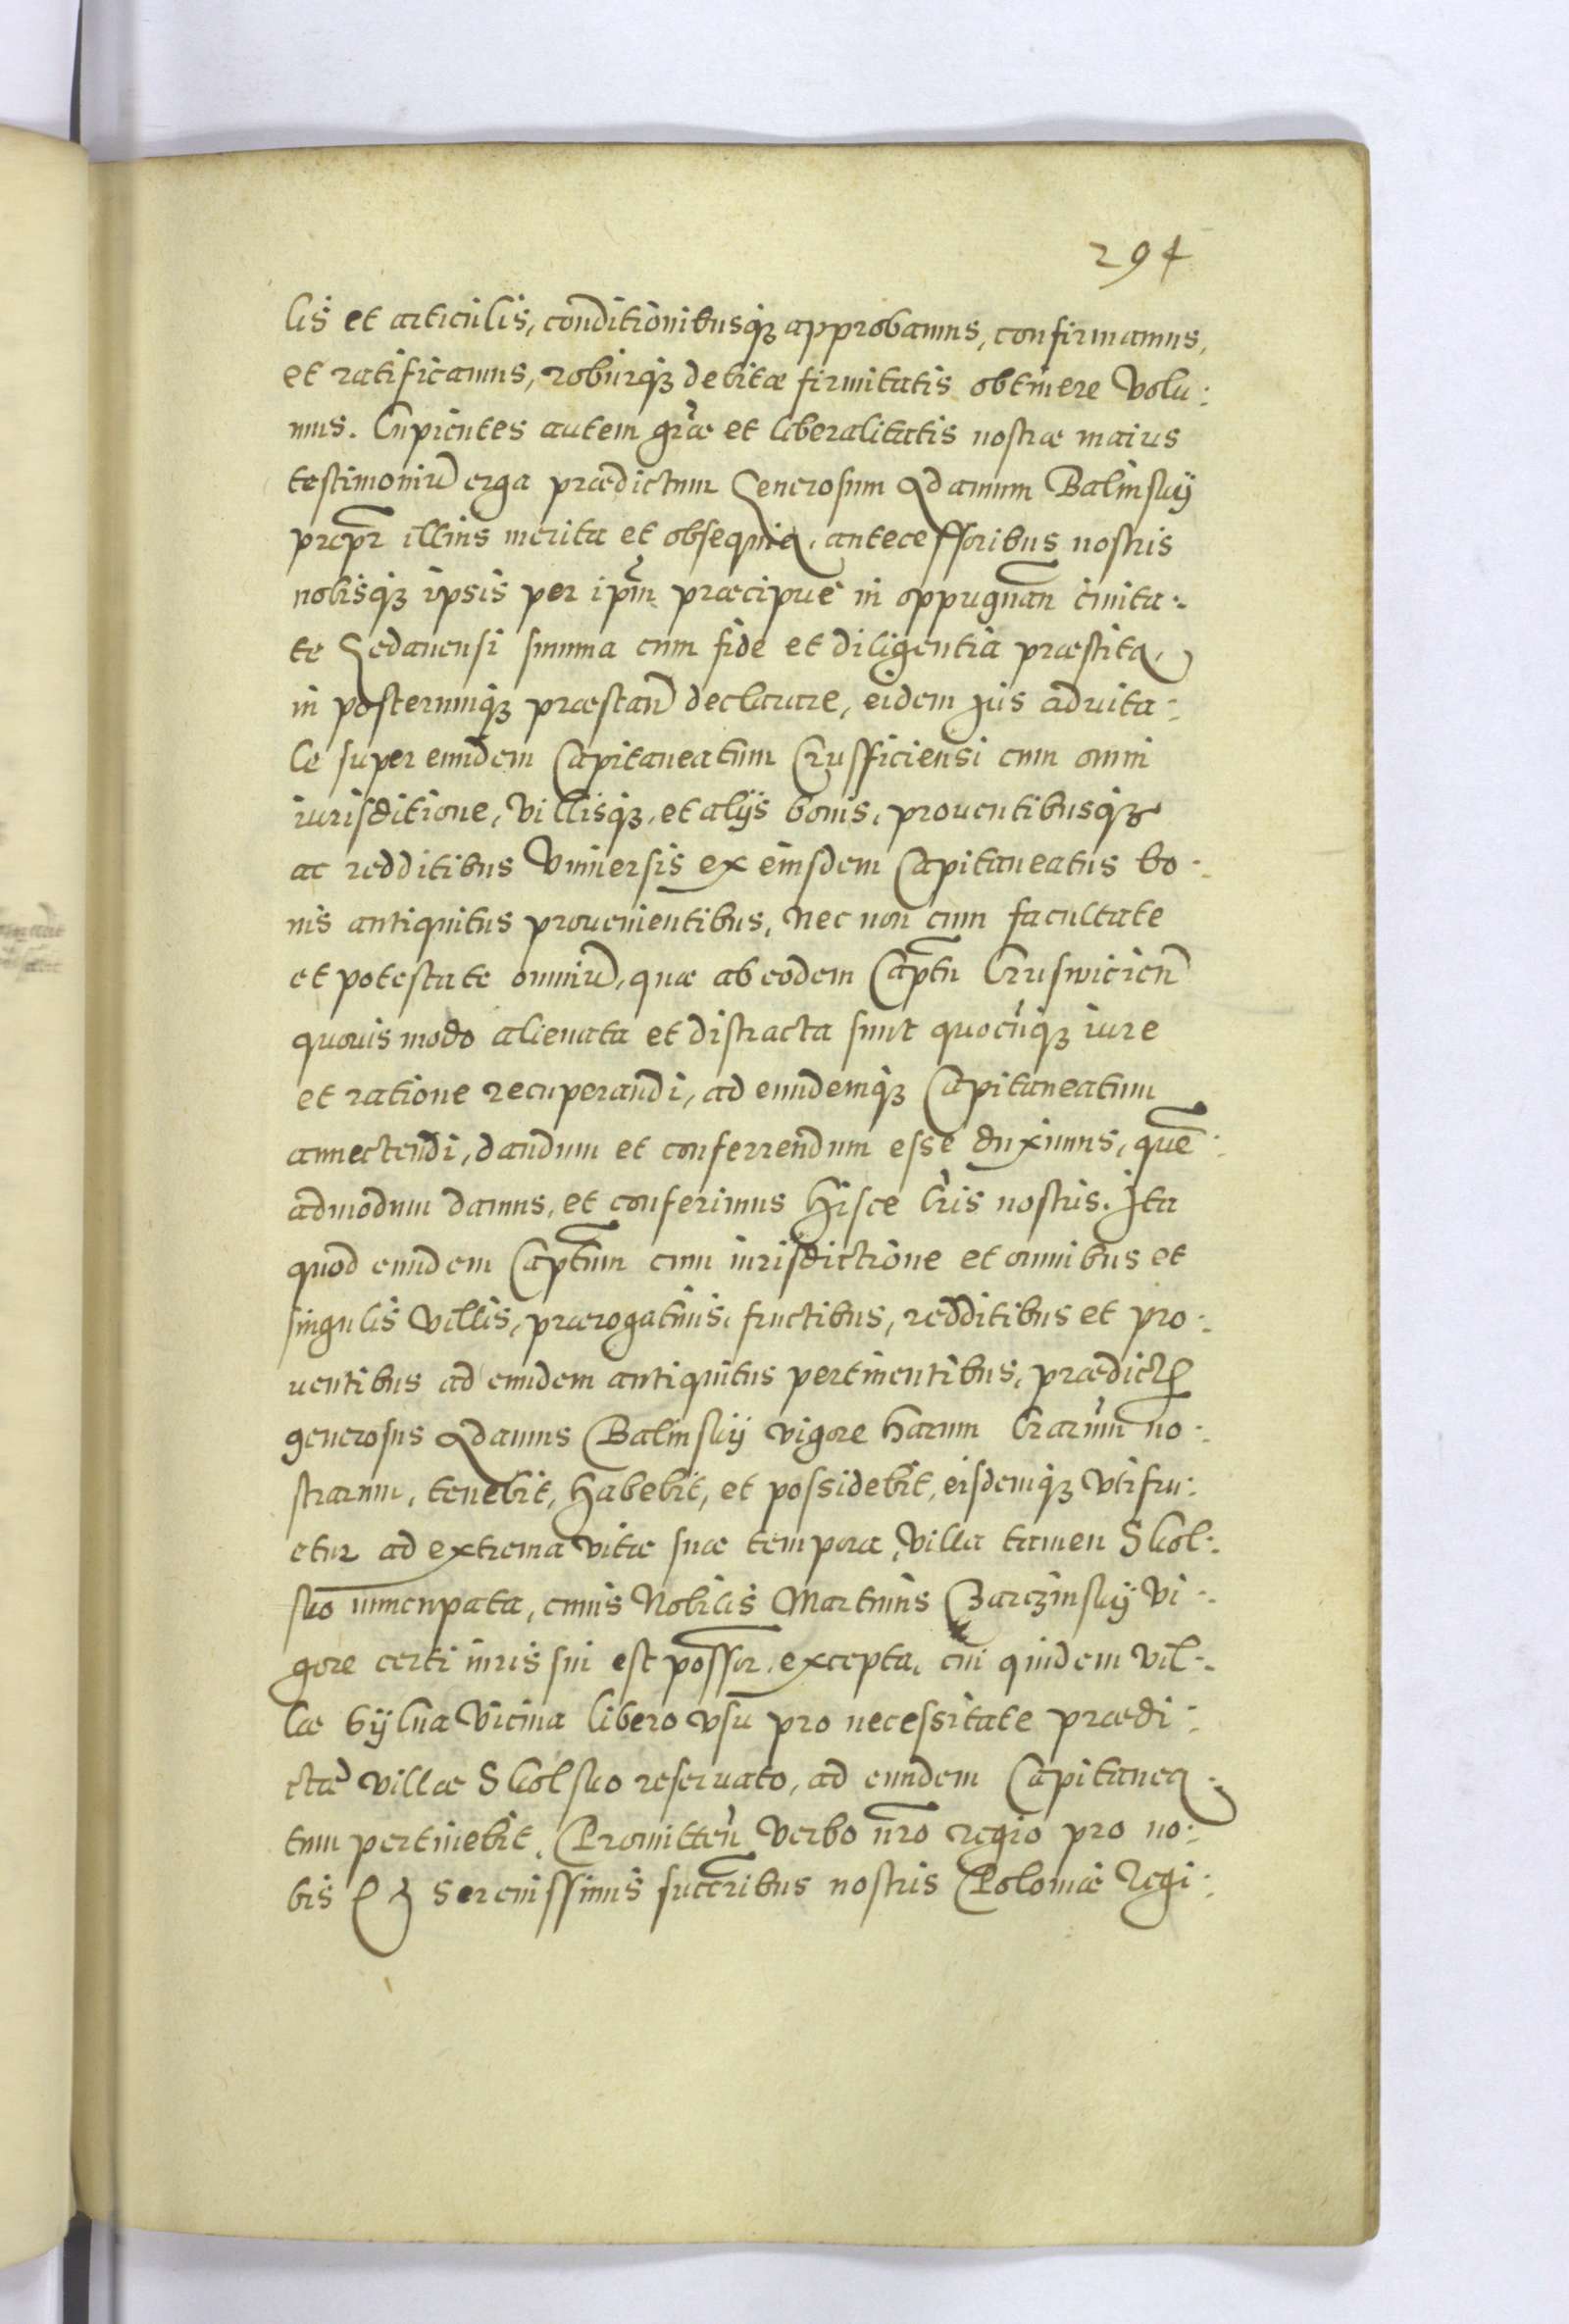 294
lis et articulis, conditionibusq₃ approbamus, confirmamus,
et ratificamus, roburq₃ debitæ firmitatis obtinere volu:
mus. Cupientes autem gr̃æ et liberalitatis nostræ maius
testimoniũ erga prædictum Generosum Adamum Balinskÿ
propr̃ illius merita et obsequia, antecessoribus nostris
nobisq₃ ipsis per ip̃m præcipue in oppugnañ ciuita:
te Gedanensi summa cum fide et diligentia præstita,
in posterumq₃ præstañ declarare, eidem Jus aduita:
le super eundem Capitaneatum Crusficiensi cum omni
iurisditione, villisq₃, et alÿs bonis, prouentibusq₃
ac redditibus vniuersis ex eiusdem Capitaneatus bo:
nis antiquitus prouenientibus, nec non cum facultate
et potestate omniũ, quæ ab eodem Cap̃tu Cruswicieñ
quouis modo alienata et distracta sunt quocũq₃ iure
et ratione recuperandi, ad eundemq₃ Capitaneatum
annectendi, dandum et conferrendum esse duximus, quẽ:
admodum damus, et conferimus hisce l̃ris nostris. Jta
quod eundem Cap̃tum cum iurisdictione et omnibus et
singulis villis, prærogatiuis, fructibus, redditibus et pro:
uentibus ad eundem antiquitus pertinentibus, prædictꝰ
generosus Adamus Balinskÿ vigore harum l̃rarum no:
strarum, tenebit, habebit, et possidebit, eisdemq₃ vti fru:
etur ad extrema vitæ suæ tempora, villa tamen Skol:
sko nuncupata, cuius Nobilis Martinus Czarczinskÿ vi:
gore certi iuris sui est poss̃or, excepta, cui quidem vil:
læ sÿlua vicina libero vsu pro necessitate prædi:
ctæ villæ Skolsko reseruato, ad eundem Capitanea:
tum pertinebit. Promitteñ verbo ñro regio pro no:
bis et serenissimis succ̃ribus nostris Poloniæ Regi: